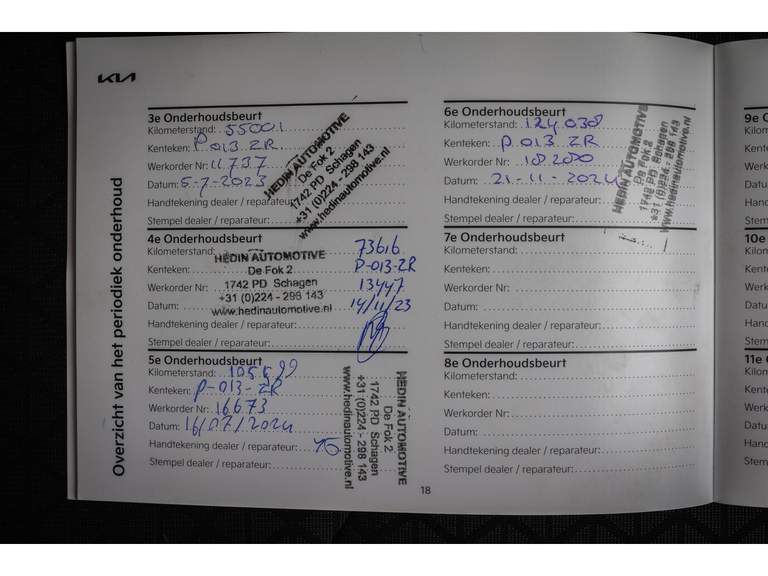 KIA
Overzicht van het periodiek onderhoud
3e Onderhoudsbeurt
Kilometerstand: 55001
Kenteken: P 013 ZR
Werkorder Nr: 11737
Datum: 5-7-2023
Handtekening dealer / reparateur:
Stempel dealer / reparateur:
HEDIN AUTOMOTIVE
De Fok 2
1742 PD Schagen
+31 (0)224 - 298 143
www.hedinautomotive.nl
4e Onderhoudsbeurt
Kilometerstand: 73616
Kenteken: P-013-ZR
Werkorder Nr: 13447
Datum: 14/11/23
Handtekening dealer / reparateur:
Stempel dealer / reparateur:
HEDIN AUTOMOTIVE
De Fok 2
1742 PD Schagen
+31 (0)224 - 298 143
www.hedinautomotive.nl
5e Onderhoudsbeurt
Kilometerstand:
Kenteken: P-013-ZR
Werkorder Nr: 16673
Datum: 16/07/2024
Handtekening dealer / reparateur:
Stempel dealer / reparateur:
HEDIN AUTOMOTIVE
De Fok 2
1742 PD Schagen
+31 (0)224 - 298 143
www.hedinautomotive.nl
6e Onderhoudsbeurt
Kilometerstand: 124.038
Kenteken: P.013.ZR
Werkorder Nr:
Datum: 21-11-2024
Handtekening dealer / reparateur:
Stempel dealer / reparateur:
HEDIN AUTOMOTIVE
De Fok 2
1742 PD Schagen
+31 (0)224 - 298 143
www.hedinautomotive.nl
7e Onderhoudsbeurt
Kilometerstand:
Kenteken:
Werkorder Nr:
Datum:
Handtekening dealer / reparateur:
Stempel dealer / reparateur:
8e Onderhoudsbeurt
Kilometerstand:
Kenteken:
Werkorder Nr:
Datum:
Handtekening dealer / reparateur:
Stempel dealer / reparateur:
18
9e O
Kilom
Kente
Werk
Datu
Hand
Stem
10e
Kilon
Kent
Werk
Datu
Hand
Stem
11e
Kilon
Kent
Werk
Datu
Hand
Stem